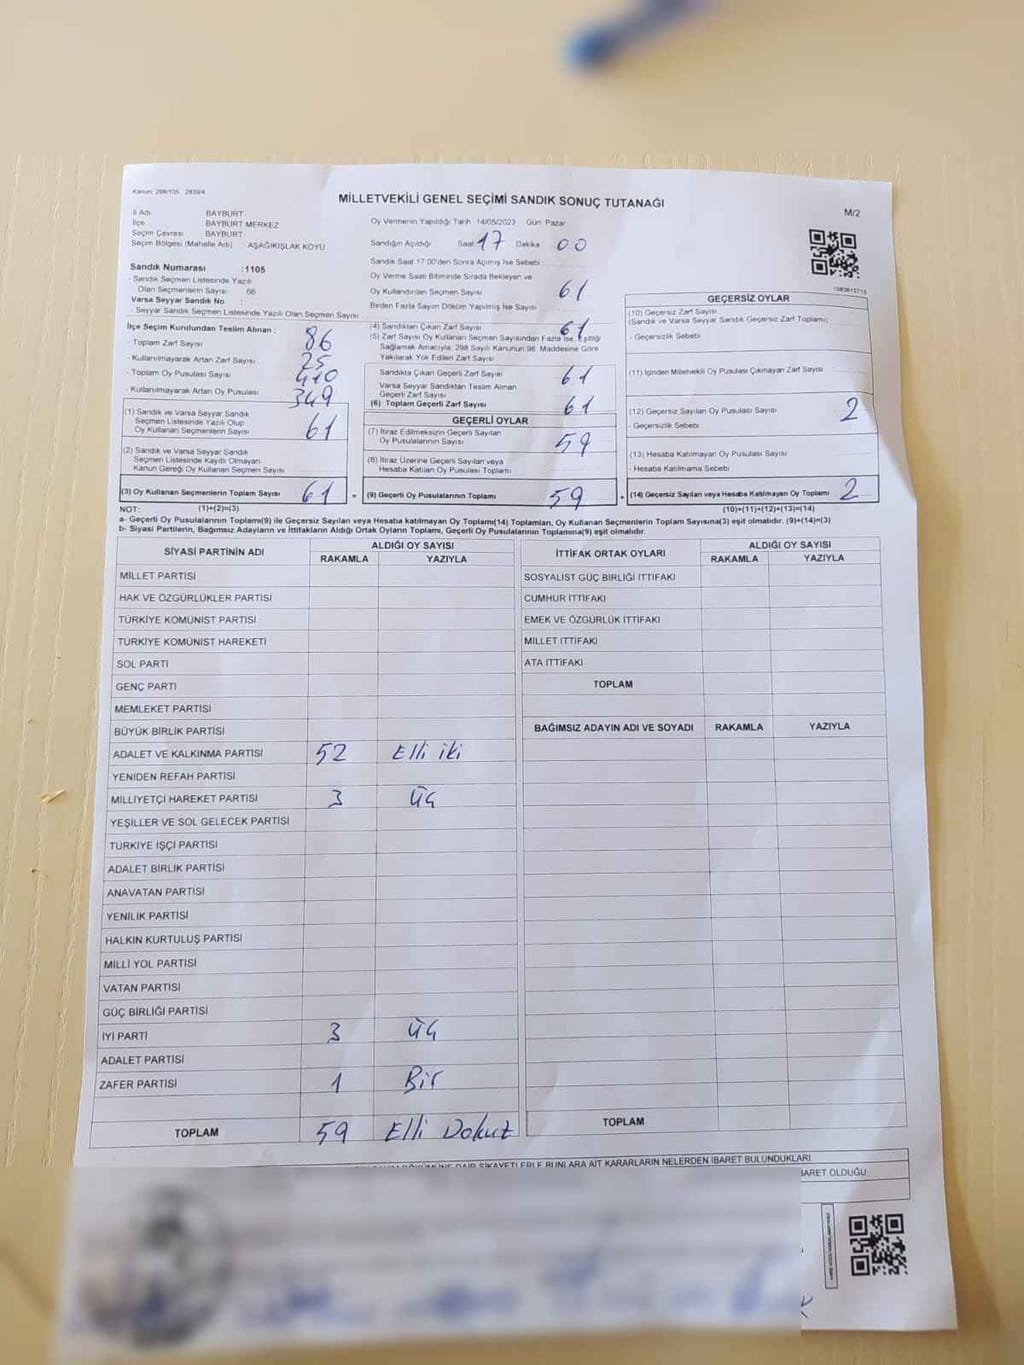 Kanun: 298/105 , 2839/4
MİLLETVEKİLİ GENEL SEÇİMİ SANDIK SONUÇ TUTANAĞI
M/2
İl Adı BAYBURT
İlçe BAYBURT MERKEZ
Seçim Çevresi BAYBURT
Seçim Bölgesi (Mahalle Adı) AŞAĞIKIŞLAK KÖYÜ
Sandık Numarası :1105
- Sandık Seçmen Listesinde Yazılı
Olan Seçmenlerin Sayısı 66
Varsa Seyyar Sandık No :
- Seyyar Sandık Seçmen Listesinde Yazılı Olan Seçmen Sayısı
Oy Vermenin Yapıldığı Tarih 14/05/2023 Gün: Pazar
Sandığın Açıldığı Saat 17 Dakika 00
Sandık Saat 17:00'den Sonra Açılmış İse Sebebi
Oy Verme Saati Bitiminde Sırada Bekleyen ve
Oy Kullandırılan Seçmen Sayısı 61
Birden Fazla Sayım Döküm Yapılmış İse Sayısı
İlçe Seçim Kurulundan Teslim Alınan ;
- Toplam Zarf Sayısı 86
- Kullanılmayarak Artan Zarf Sayısı 25
- Toplam Oy Pusulası Sayısı 410
- Kullanılmayarak Artan Oy Pusulası 349
(1) Sandık ve Varsa Seyyar Sandık
Seçmen Listesinde Yazılı Olup
Oy Kullanan Seçmenlerin Sayısı 61
(2) Sandık ve Varsa Seyyar Sandık
Seçmen Listesinde Kayıtlı Olmayan
Kanun Gereği Oy Kullanan Seçmen Sayısı
(3) Oy Kullanan Seçmenlerin Toplam Sayısı 61 =
(4) Sandıktan Çıkan Zarf Sayısı 61
(5) Zarf Sayısı Oy Kullanan Seçmen Sayısından Fazla İse, Eşitliği
Sağlamak Amacıyla, 298 Sayılı Kanunun 98. Maddesine Göre
Yakılarak Yok Edilen Zarf Sayısı
Sandıkta Çıkan Geçerli Zarf Sayısı 61
Varsa Seyyar Sandıktan Teslim Alınan
Geçerli Zarf Sayısı
(6) Toplam Geçerli Zarf Sayısı 61
GEÇERLİ OYLAR
(7) İtiraz Edilmeksizin Geçerli Sayılan
Oy Pusulalarının Sayısı 59
(8) İtiraz Üzerine Geçerli Sayılan veya
Hesaba Katılan Oy Pusulası Toplamı
(9) Geçerli Oy Pusulalarının Toplamı 59 +
GEÇERSİZ OYLAR
(10) Geçersiz Zarf Sayısı
(Sandık ve Varsa Seyyar Sandık Geçersiz Zarf Toplamı)
- Geçersizlik Sebebi
(11) İçinden Milletvekili Oy Pusulası Çıkmayan Zarf Sayısı
(12) Geçersiz Sayılan Oy Pusulası Sayısı 2
- Geçersizlik Sebebi
(13) Hesaba Katılmayan Oy Pusulası Sayısı
- Hesaba Katılmama Sebebi
(14) Geçersiz Sayılan veya Hesaba Katılmayan Oy Toplamı 2
NOT: (1)+(2)=(3) (10)+(11)+(12)+(13)=(14)
a- Geçerli Oy Pusulalarının Toplamı(9) ile Geçersiz Sayılan veya Hesaba katılmayan Oy Toplamı(14) Toplamları, Oy Kullanan Seçmenlerin Toplam Sayısına(3) eşit olmalıdır. (9)+(14)=(3)
b- Siyasi Partilerin, Bağımsız Adayların ve İttifakların Aldığı Ortak Oyların Toplamı, Geçerli Oy Pusulalarının Toplamına(9) eşit olmalıdır.
SİYASİ PARTİNİN ADI ALDIĞI OY SAYISI
RAKAMLA YAZIYLA
MİLLET PARTİSİ
HAK VE ÖZGÜRLÜKLER PARTİSİ
TÜRKİYE KOMÜNİST PARTİSİ
TÜRKİYE KOMÜNİST HAREKETİ
SOL PARTİ
GENÇ PARTİ
MEMLEKET PARTİSİ
BÜYÜK BİRLİK PARTİSİ
ADALET VE KALKINMA PARTİSİ 52 Elli iki
YENİDEN REFAH PARTİSİ
MİLLİYETÇİ HAREKET PARTİSİ 3 Üç
YEŞİLLER VE SOL GELECEK PARTİSİ
TÜRKİYE İŞÇİ PARTİSİ
ADALET BİRLİK PARTİSİ
ANAVATAN PARTİSİ
YENİLİK PARTİSİ
HALKIN KURTULUŞ PARTİSİ
MİLLİ YOL PARTİSİ
VATAN PARTİSİ
GÜÇ BİRLİĞİ PARTİSİ
İYİ PARTİ 3 Üç
ADALET PARTİSİ
ZAFER PARTİSİ 1 Bir
TOPLAM 59 Elli Dokuz
İTTİFAK ORTAK OYLARI ALDIĞI OY SAYISI
RAKAMLA YAZIYLA
SOSYALİST GÜÇ BİRLİĞİ İTTİFAKI
CUMHUR İTTİFAKI
EMEK VE ÖZGÜRLÜK İTTİFAKI
MİLLET İTTİFAKI
ATA İTTİFAKI
TOPLAM
BAĞIMSIZ ADAYIN ADI VE SOYADI RAKAMLA YAZIYLA
TOPLAM
DAİR ŞİKAYETLERLE BUNLARA AİT KARARLARIN NELERDEN İBARET BULUNDUKLARI
BARET OLDUĞU